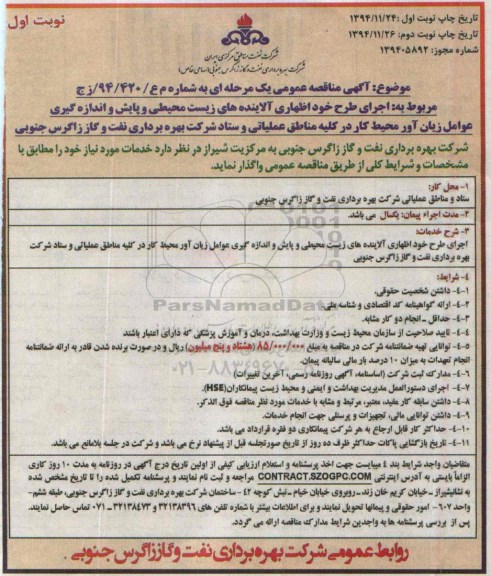 نوبت اول
تاریخ چاپ نوبت اول: ۱۳۹۴/۱۱/۲۴
تاریخ چاپ نوبت دوم: ۱۳۹۴/۱۱/۲۶
شماره مجوز: ۱۳۹۴۰۵۸۹۲
شرکت نفت مناطق مرکزی ایران
شرکت بهره برداری نفت و گاز زاگرس جنوبی (سهامی خاص)
موضوع: آگهی مناقصه عمومی یک مرحله ای به شماره م ع/۹۴/۴۲۰/ز ج
مربوط به: اجرای طرح خود اظهاری آلاینده های زیست محیطی و پایش و اندازه گیری
عوامل زیان آور محیط کار در کلیه مناطق عملیاتی و ستاد شرکت بهره برداری نفت و گاز زاگرس جنوبی
شرکت بهره برداری نفت و گاز زاگرس جنوبی به مرکزیت شیراز در نظر دارد خدمات مورد نیاز خود را مطابق با
مشخصات و شرایط کلی از طریق مناقصه عمومی واگذار نماید.
۱- محل کار:
ستاد و مناطق عملیاتی شرکت بهره برداری نفت و گاز زاگرس جنوبی
۲- مدت اجراء پیمان: یکسال می باشد.
۳- شرح خدمات:
اجرای طرح خود اظهاری آلاینده های زیست محیطی و پایش و اندازه گیری عوامل زیان آور محیط کار در کلیه مناطق عملیاتی و ستاد شرکت
بهره برداری نفت و گاز زاگرس جنوبی
۴- شرایط:
۴-۱- داشتن شخصیت حقوقی.
۴-۲- ارائه گواهینامه کد اقتصادی و شناسه ملی.
۴-۳- حداقل ـ انجام دو کار مشابه.
۴-۴- تایید صلاحیت از سازمان محیط زیست و وزارت بهداشت، درمان و آموزش پزشکی که دارای اعتبار باشند
۴-۵- توانایی تهیه ضمانتنامه شرکت در مناقصه به مبلغ ۸۵/۰۰۰/۰۰۰ (هشتاد و پنج میلیون) ریال و در صورت برنده شدن قادر به ارائه ضمانتنامه
انجام تعهدات به میزان ۱۰ درصد بار مالی سالیانه پیمان.
۴-۶- مدارک ثبت شرکت (اساسنامه، آگهی روزنامه رسمی، آخرین تغییرات)
۴-۷- اجرای دستورالعمل مدیریت بهداشت و ایمنی و محیط زیست پیمانکاران (HSE).
۴-۸- داشتن سابقه کار مفید، معتبر، مرتبط و مشابه با خدمات مورد نظر مناقصه فوق الذکر.
۴-۹- داشتن توانایی مالی، تجهیزات و پرسنلی جهت انجام خدمات.
۴-۱۰- حداکثر کار قابل ارجاع به هر شرکت پیمانکاری دو فقره قرارداد می باشد.
۴-۱۱- تاریخ بازگشایی پاکات حداکثر ظرف ده روز از تاریخ صورتجلسه قبل از پیشنهاد نرخ می باشد و شرکت در جلسه بلامانع می باشد.
متقاضیان واجد شرایط بند ۴ میبایست جهت اخذ پرسشنامه و استعلام ارزیابی کیفی از اولین تاریخ درج آگهی در روزنامه به مدت ۱۰ روز کاری
الزاماً بایستی به آدرس اینترنتی CONTRACT.SZOGPC.COM مراجعه و ثبت نام نمایند و پرسشنامه تکمیل شده را تا تاریخ مشخص شده
به نشانی شیراز ـ خیابان کریم خان زند ـ روبروی خیابان خیام ـ نبش کوچه ۴۲ - ساختمان شرکت بهره برداری نفت و گاز زاگرس جنوبی، طبقه ششم-
واحد ۶۰۷- امور حقوقی و پیمانها تحویل نمایند و برای اطلاعات بیشتر با شماره تلفن های ۳۲۱۳۸۳۹۶ و ۳۲۱۳۸۴۷۳ ـ ۰۷۱ تماس حاصل نمایند.
پس از بررسی پرسشنامه ها به واجدین شرایط مدارک مناقصه ارائه می گردد.
روابط عمومی شرکت بهره برداری نفت و گاز زاگرس جنوبی
ParsNamadData
۰۲۱-۸۸۳۴۹۶۷۰